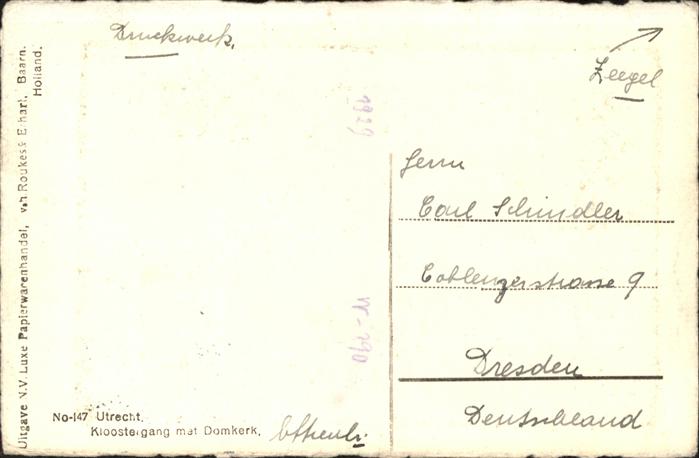 Uitgave N.V. Luxe Papierwarenhandel, v.h. Roukes & Erhart, Baarn.
Holland.
Druckwerk.
Zeegel
1929
Herrn
Carl Schindler
Coblenzerstrasse 9
Dresden
Deutschland
No-147 Utrecht.
Kloostergang met Domkerk.